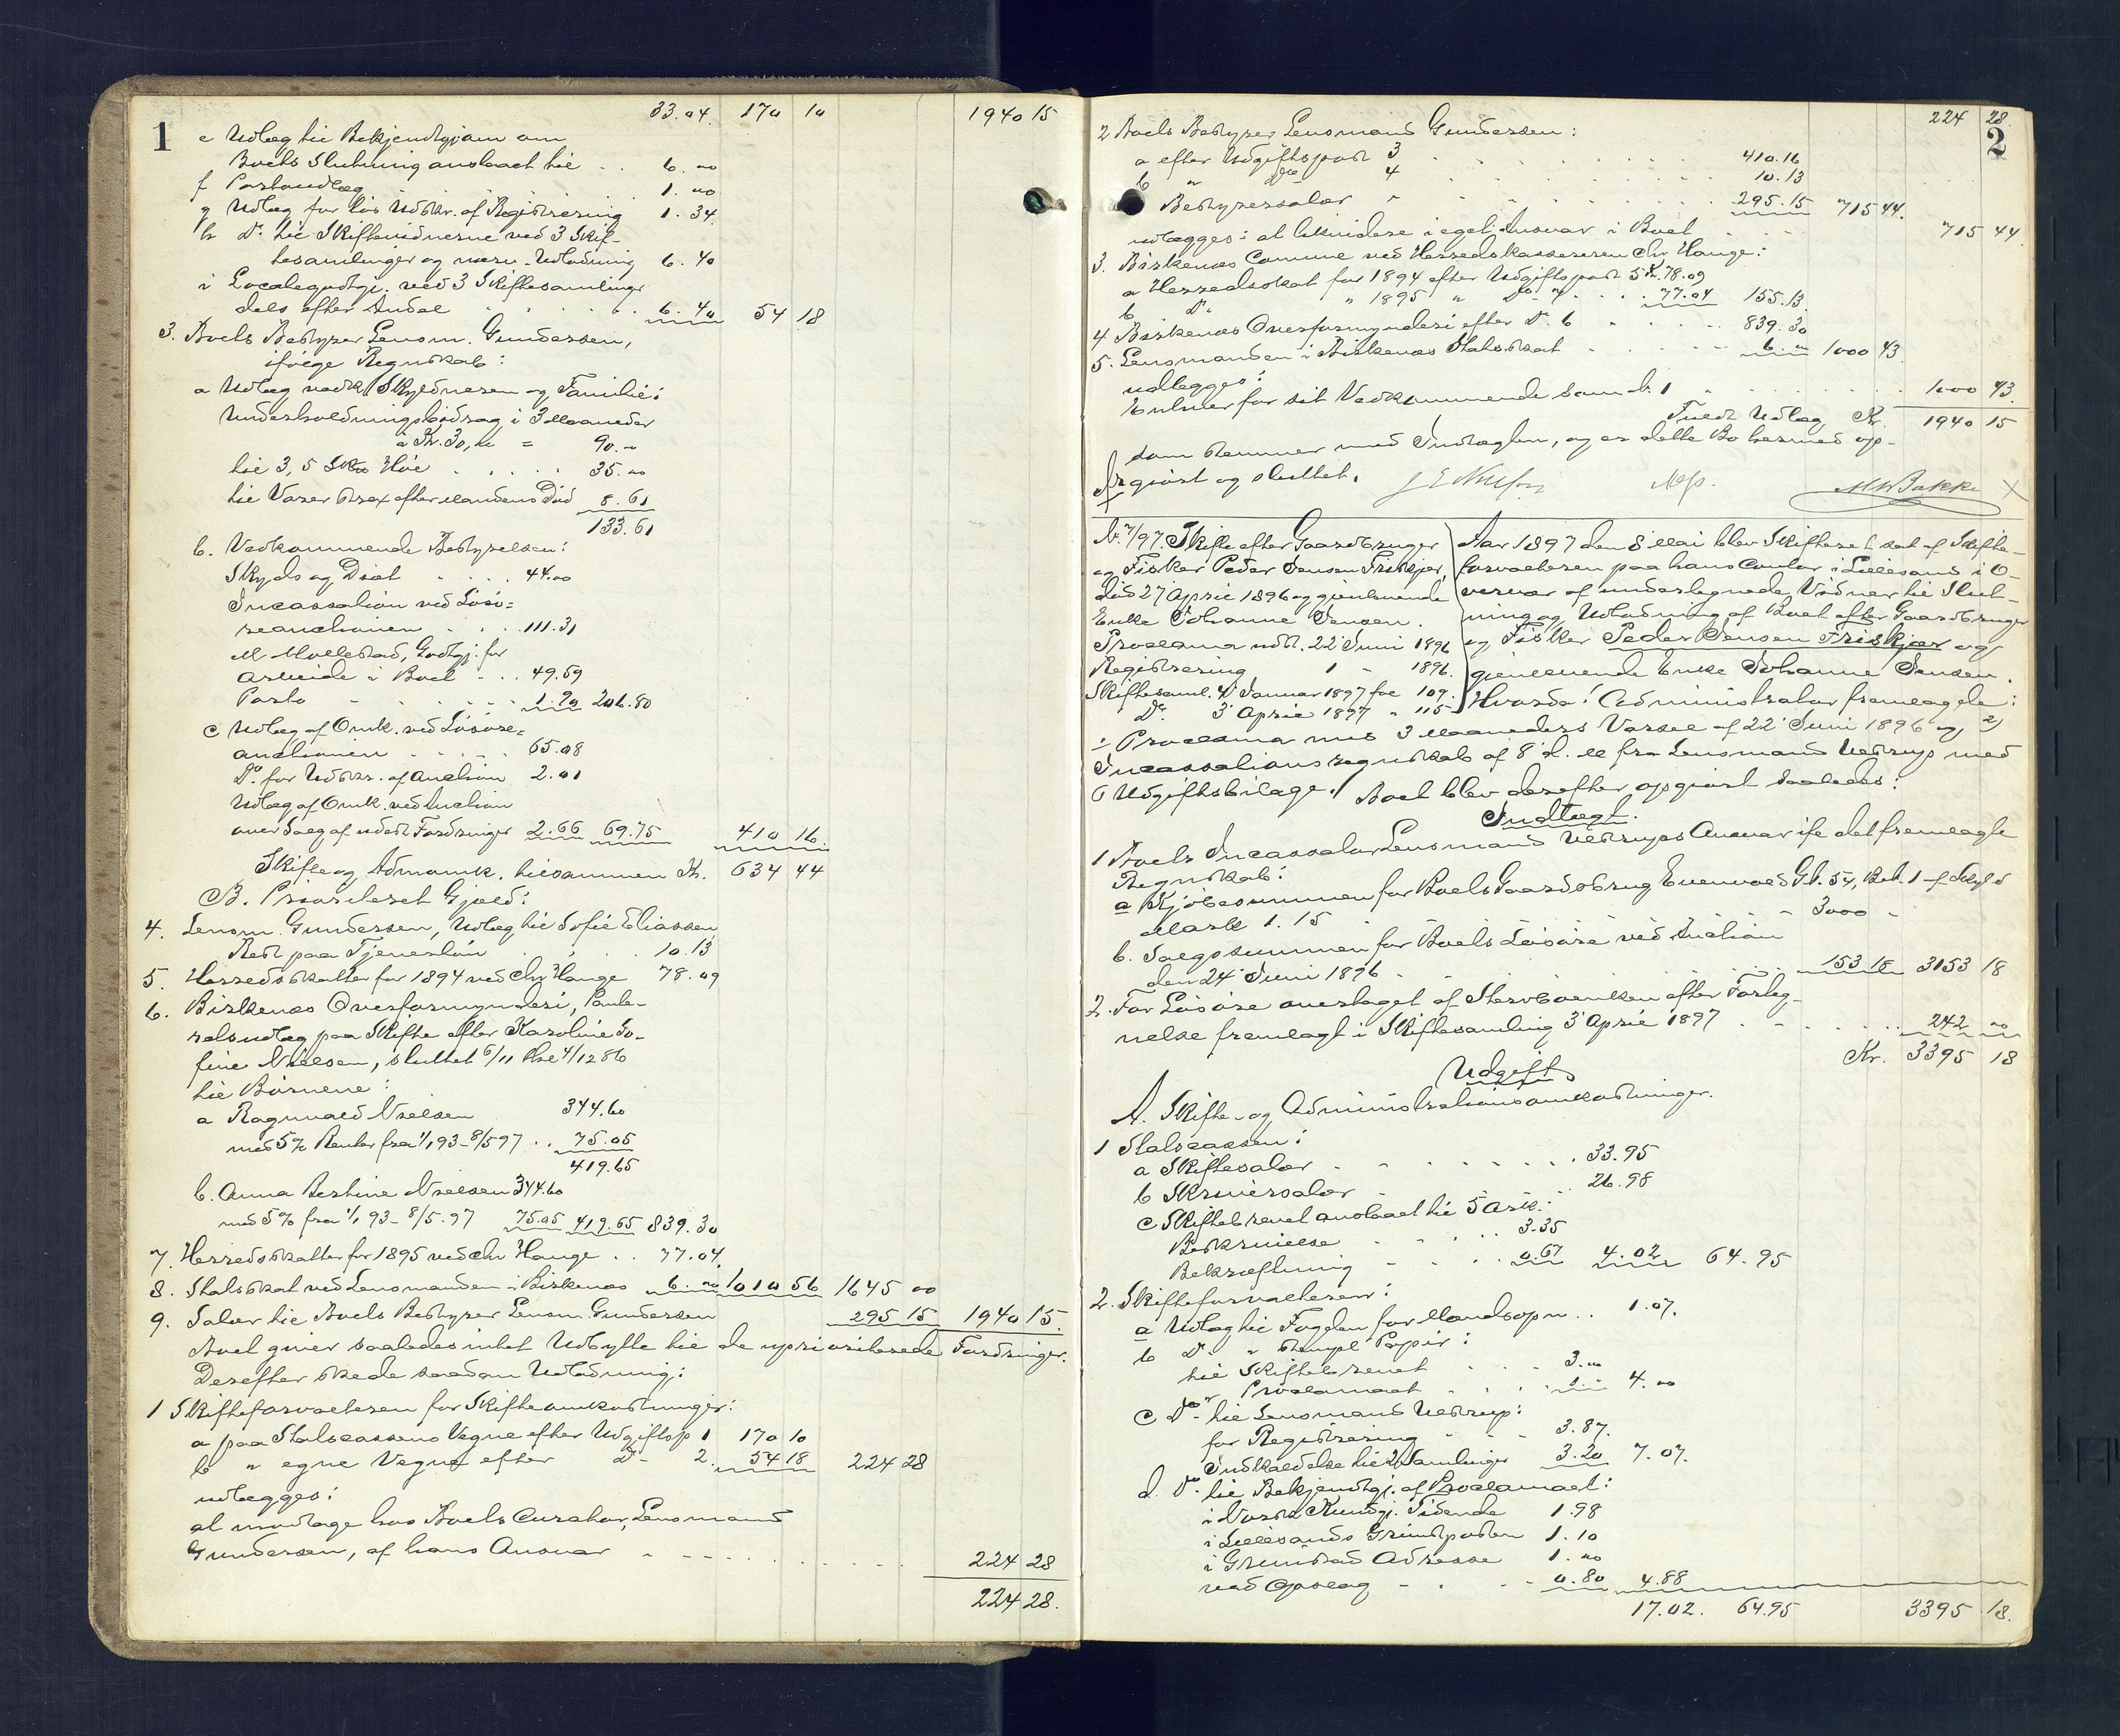 33.04. 170 10 1940 15
1
e Udlæg til Bekjendtgjør. om
Boets Slutning anslaaet til . . 6.00
f Portoudlæg 1.00
g Udlæg for løs Udskr. af Registrering 1.34
h Do. til Skiftevidnerne ved 3 Skif-
tesamlinger og nærv. Udlodning 6.40
i Localegodtgj. ved 3 Skiftesamlinger
dels efter Andel . . . . 6.40 54 18
3. Boets Bestyrer Lensm. Gundersen,
ifølge Regnskab:
a Udlæg vedk. Skyldneren og Familie:
Underholdningsbidrag i 3 Maaneder
à Kr. 30,00 = 90.00
til 3,5 Høi . . . . 35.00
til Varer strax efter Mandens Død 8.61
133.61
b. Vedkommende Bestyrelsen:
Skyds og Diæt . . . . 44.00
Incassation ved Løsø-
reauctionen . . . 111.31
M Mollestad, Godtgj. for
Arbeide i Boet . . . 49.59
Porto . . . . 1.90 206.80
c Udlæg af Omk. ved Løsøre-
auctionen . . . . 65.08
Do. for Udskr. af Auction 2.01
Udlæg af Omk. ved Auction
over Salg af udest. Fordringer 2.66 69.75 410 16.
Skifte og Admomk. tilsammen Kr. 634 44
B. Prioriteret Gjæld:
4. Lensm. Gundersen, Udlæg til Sofie Eliassen
Rest paa Tjenesteløn . . . . 10.13
5. Herredsskatter for 1894 ved Chr Hauge 78.09
6. Birkenæs Overformynderi,
udlæg paa Skifte efter Karoline Jo-
fine Nielsen, sluttet 6/11 4/12 86
til Børnene:
a Ragnvald Nielsen 344.60
med 5% Renter fra 1/1 93 - 8/5 97 . . 75.05
419.65
b. Anna Bertine Nielsen 344.60
med 5% fra 1/1 93 - 8/5.97 75.05 419.65 839.30
7. Herredsskatter for 1895 ved Chr Hauge . . 77.04.
8. Statsskat ved Lensmanden i Birkenæs 6.00 1010 56 1645 00
9. Salær til Boets Bestyrer Lensm. Gundersen 295 15 1940 15.
Boet giver saaledes intet Udbytte til de upriviligerede Fordringer.
Derefter skede saadan Udlodning:
1 Skifteforvalteren for Skifteomkostninger:
a paa Statscassens Vegne efter Udgiftsp 1 170 10
b " egne Vegne efter Do 2. 54 18 224 28
udlægges:
at modtage hos Boets Curator, Lensmand
Gundersen, af hans Ansvar - - - . . . . . . 224 28
224 28.
224 28.
2
2 Boets Bestyrer Lensmand Gundersen:
a efter Udgiftspost 3 . . . . . . 410.16
b " do 4 . . . . . . 10.13
Bestyrersalær . . . . . . 295.15 715 44.
udlægges: at likvidere i eget Ansvar i Boet . . . 715 44.
3. Birkenæs Comune ved Herredskassereren Chr Hauge:
a Herredsskat for 1894 efter Udgiftspost 5 Kr. 78.09
b Do. " 1895 " Do 7 . . . . 77.04 155.13.
4 Birkenæs Overformynderi efter Do. 6 . . . . 839.30
5. Lensmanden i Birkenæs Statsskat . . . . . 6.00 1000 43
udlægges:
Enhver for sit Vedkommende som d. 1 . . . . . 1000 43.
Tilsm. Udlæg Kr. 1940 15
som stemmer med Indtægten, og er dette Bo hermed op-
gjort og sluttet.
M W Bakke
Nr. 7/97. Skifte efter Gaardbruger
og Fisker Peder Jensen Friskjær,
død 27 April 1896 og gjenlevende
Enke Johanne Jensen.
Proclama udst. 22 Juni 1896
Registrering 1 " 1896.
Skiftesaml. 4 Januar 1897 fol 109.
Do. 3' April 1897 " 115
Aar 1897 den 8 Mai blev Skifteret sat af Skifte-
forvalteren paa hans Contor i Lillesand i O-
vervær af undertegnede Vidner til Slut-
ning og Udlodning af Boet efter Gaardbruger
og Fisker Peder Jensen Friskjær og
gjenlevende Enke Johanne Jensen.
Hvorda! Administrator fremlagde:
1 Proclama med 3 Maaneders Varsel af 22' Juni 1896 og, 2)
Incassationsregnskab af 8' d. M fra Lensmand Ueltrup med
6 Udgiftsbilage. Boet blev derefter opgjort saaledes:
Indtægt.
1 Boets Incassator Lensmand Vedrups Ansvar ifø det fremlagte
Regnskab:
a Kjøbesummen for Boets Gaardsbrug Evenvold G.N. 54, B.N. 1 af Skyld
Mark 1.15 - 3000 -
b. Salgssummen for Boets Løsøre ved Auction
den 24 Juni 1896 . . . . . 153 18 3153 18
2. For Løsøre overtaget af Stervboenken efter Forteg-
nelse fremlagt i Skiftesamling 3' April 1897 . . . . . 242 00
Kr. 3395 18
Udgift
A. Skifte- og Administrationsomkostninger.
1 Statscassen:
a Skiftesalær . . . . . . . 33.95
b Skriversalær . . . . . 26.98
c Skiftebrevet anslaaet til 5 Ark:
Beskrivelse . . . . . 3.35
Bekræftning . . . . 0.67 4.02 64.95
2. Skifteforvalteren:
a Udlæg til Fogden for Mandsopn . . 1.07.
b Do. " stempl. Papir:
til Skiftebrevet . . . 3.00
" Proclamaet . . . . 1.00 4.00
c Do. til Lensmand Vedrup:
for Registrering . . . 3.87.
Indkaldelse til 2 Samlinger 3.20 7.07.
d. Do. til Bekjendtgj. af Proclamaet:
i Norsk Kundgj. Tidende 1.98
i Lillesands Grimstposten 1.10
i Grimstad Adresse 1.00
ved Opslag - . - - 0.80 4.88
17.02. 64.95 3395 18.